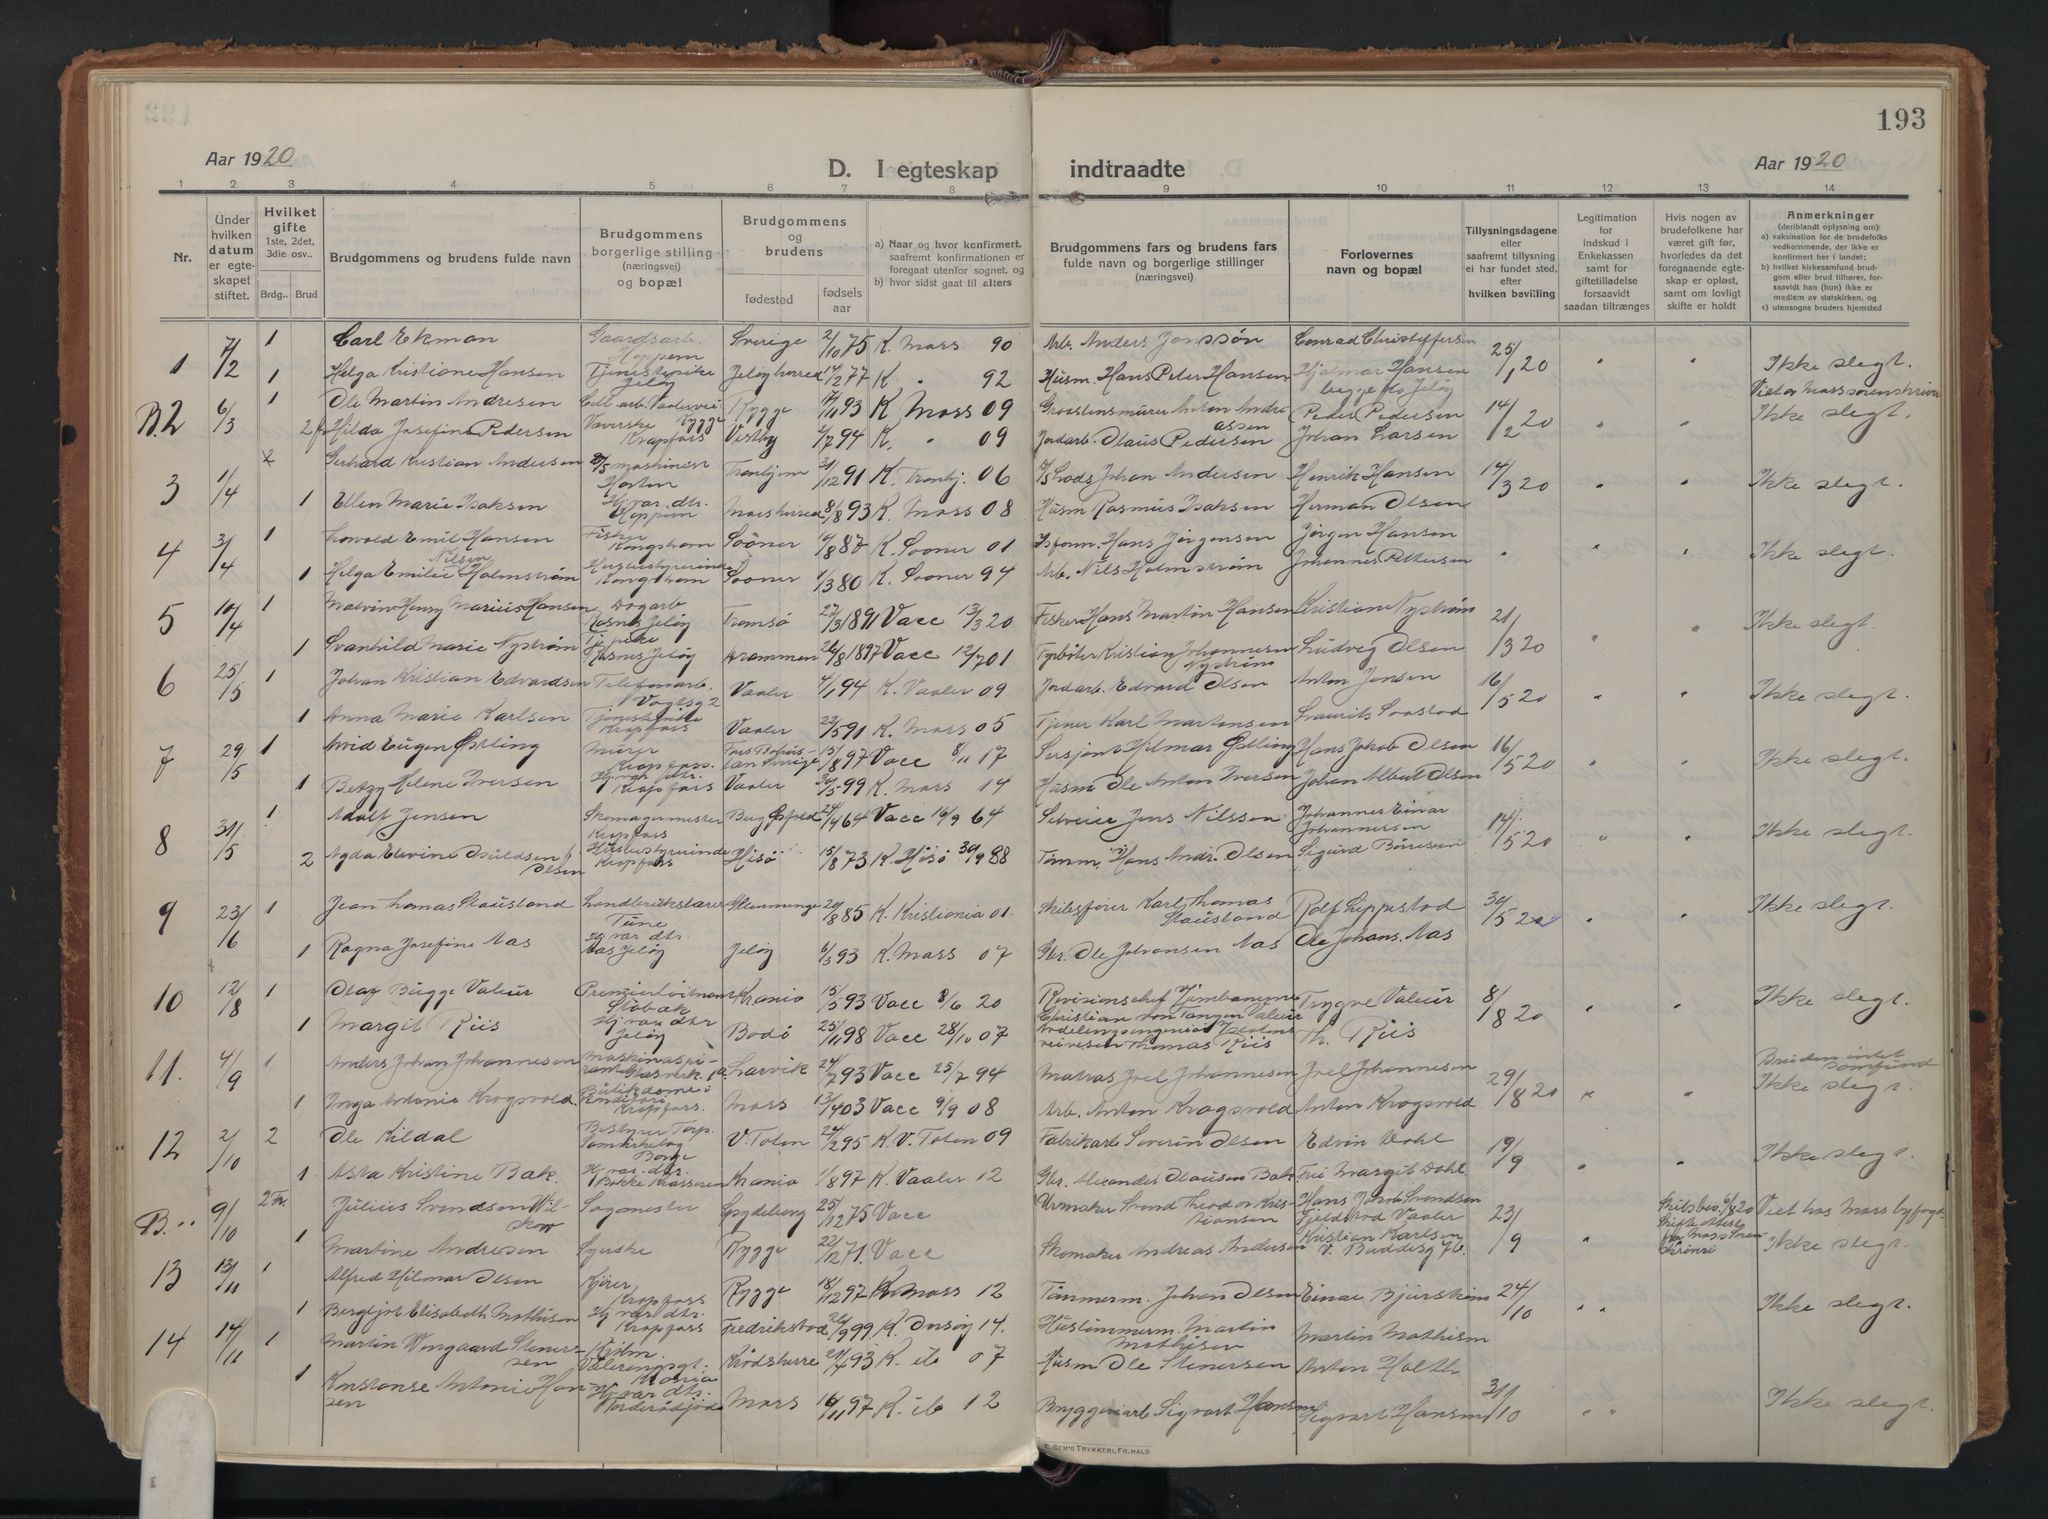 193
Aar 1920
D. I egteskap indtraadte
Aar 1920
1 2 3 4 5 6 7 8 9 10 11 12 13 14
Nr.
Under hvilken datum er egteskapet stiftet.
Hvilket gifte 1ste, 2det, 3die osv..
Brdg.. Brud
Brudgommens og brudens fulde navn
Brudgommens borgerlige stilling (næringsvei) og bopæl
Brudgommens og brudens
fødested
fødsels aar
a) Naar og hvor konfirmert, saafremt konfirmationen er foregaat utenfor sognet, og
b) hvor sidst gaat til alters
Brudgommens fars og brudens fars fulde navn og borgerlige stillinger (næringsvei)
Forlovernes navn og bopæl
Tillysningsdagene eller saafremt tillysning ei har fundet sted, efter hvilken bevilling
Legitimation for indskud i Enkekassen samt for giftetilladelse forsaavidt saadan tiltrænges
Hvis nogen av brudefolkene har været gift før, hvorledes da det foregaaende egteskap er opløst, samt om lovligt skifte er holdt
Anmerkninger (deriblandt oplysning om):
a) vaksination for de brudefolks vedkommende, der ikke er konfirmert her i landet;
b) hvilket kirkesamfund brudgom eller brud tilhører, forsaavidt han (hun) ikke er medlem av statskirken, og
c) utensogns bruders hjemsted
1 7/2 1 Carl Ekman Gaardsarb. Hoppern Sverige 2/10 75 K. Moss 90 Arb. Anders Jonssøn Conrad Christoffersen 25/1 20 Ikke slegt.
1 Helga Kristiane Hansen Tjenestepike Jeløy Jeløy herred 14/2 77 K. " 92 Husm. Hans Peter Hansen Hjalmar Hansen begge fra Jeløy
B.2 6/3 1 Ole Martin Andresen Rygge 93 K. Moss 09 Graastensmurer Anton Andreassen Peder Pedersen 14/2 20 Ikke slegt.
Hilda Josefine Pedersen Krapfoss Vestby 2/7 94 K. " 09 Jordarb. Olaus Pedersen Johan Larsen
3 1/4 2 Gerhard Kristian Andersen maskinist Horten Tronhjem 31/12 91 K. Tronhj. 06 Johan Andersen Henrik Hansen 14/3 20 Ikke slegt.
1 Ellen Marie Isaksen Hj.vær. dtr. Hoppern Moss herred 8/8 93 K. Moss 08 Husm Rasmus Isaksen Herman Olsen
4 3/4 1 Emil Hansen Fisker Kongshavn Sooner 87 K. Sooner 01 Hans Jørgensen Jørgen Hansen Ikke slegt.
1 Helga Emilie Nilsen Holmstrøm Husbestyrerinde Kongshavn Sooner 1/3 80 K. Sooner 94 Arb. Nils Holmstrøm Johannes Pettersen
5 10/4 1 Malvin Henry Marius Hansen Dagarb Jeløy Tromsø 27/3 1891 Vacc 13/3 20 Fisker Hans Martin Hansen Kristiane Nystrøm 21/3 20 Ikke slegt.
1 Svanhild Marie Nystrøm Tj. pike Jeløy Drammen 26/8 1897 Vacc 12/7 01 Fyrbøter Kristian Johannesen Nystrøm Ludvig Olsen
6 25/5 1 Johan Kristian Edvardsen Telefonarb. Vogtsg 2 Vaaler 4/1 94 K. Vaaler 09 Jordarb. Edvard Olsen Anton Jensen 16/5 20 Ikke slegt.
1 Anna Marie Karlsen Tjenestepike Krapfoss Vaaler 23/5 91 K. Moss 05 Tjener Karl Martensen Laurits Saastad
7 29/5 1 Arvid Eugen Østling Murer Krapfoss. Sverige 15/8 97 Vacc 8/11 17 Sersjant Hilmar Østling Hans Jakob Olsen 16/5 20 Ikke slegt.
1 Betzy Helene Iversen Hj.vær dtr. Krapfoss Vaaler 30/5 99 K. Moss 14 Husm Ole Anton Iversen Johan Albert Olsen
8 31/5 1 Adolf Jensen Skomagermester Krapfoss Berg Østfold 24/4 64 Vacc 16/9 64 Selveier Jens Nilsson Johannes Einar Johannessen 14/5 20 Ikke slegt.
2 Agda Elevine Olsen Husbestyrerinde Krapfoss Hisø 15/8 73 K. Hisø 30/9 88 Tømm. Hans Andr. Olsen Sigurd Børresen
9 23/6 1 Jean Thomas Stausland Landbrukslærer Tune 20/8 85 K. Kristiania 01. Skibsfører Karl Thomas Stausland Rolf Lippestad 30/5 20 Ikke slegt.
1 Ragna Josefine Aas Hj.vær dtr. Aas Jeløy Jeløy 6/3 93 K. Moss 07 Gbr. Ole Johansen Aas Ole Johans. Aas
10 12/8 1 Olaf Bugge Valeur Premierløitnant Stabæk Krania 15/5 93 Vacc 8/6 20 Revisionschef Jernbanerne Christian von Tangen Valeur Trygve Valeur 8/8 20 Ikke slegt.
1 Margit Riis Hj.vær dtr Jeløy Bodø 25/11 98 Vacc 28/10 07 Avdelingsingeniør Thomas Riis Th. Riis
11. 4/9 1 Anders Johan Johannesen Larvik 24/7 93 Vacc 25/7 94 Matros Joel Johannesen Joel Johannesen 29/8 20 Ikke slegt.
1 Inga Antonie Krogsvold. Krapfoss. Moss 13/4 03 Vacc 9/9 08 Arb. Anton Krogsvold Anton Krogsvold
12 2/10 2 Ole Kildal Bestyrer Torp. Borge V. Toten 24/2 95 K. V. Toten 09 Fabrikarb Severin Olsen Edvin Dahl 19/9 Ikke slegt.
1 Asta Kristine Bak. Hj.vær. dtr. Krania 1/8 97 K. Vaaler 12 Gbr. Alexander Olausen Bak Margit Dahl
B. 9/10 2 Julius Svendsen Vilskow Sagmester Spydeberg 25/12 75 Vacc Urmaker Svend Theodor Kristiansen Hans Jakob Svendsen Fjeldstad Vaaler 23/9 6/8 20 Viet hos Moss byfogd
1 Martine Andresen Syerske Rygge 22/12 71. Vacc Skomaker Andreas Andersen Kristian Karlsen Ikke slegt.
13 13/11 1 Alfred Hilmar Olsen Kjører Krapfoss Rygge 18/12 97 K. Moss 12 Tømmerm. Johan Olsen Einar Bjurstrøm 24/10 Ikke slegt.
1 Bergljot Elisabeth Mathisen Hj.vær dtr. Krapfoss Fredrikstad 99 K. Onsøy 14. Hustømmerm. Martin Mathisen Martin Mathisen
14 14/11 1 Martin Stenerssen Vaalerengsgt. Krania Krødsherre 21/4 93 K. ib 07 Husm Ole Stenersen Anton Holth
1 Konstanse Antonie Hansen Hj.vær dtr. Moss 16/11 97 K. ib 12 Bryggeriarb Sigvart Hansen Sigvart Hansen 31/10 Ikke slegt.
E. SEM'S TRYKKERI, FR. HALD